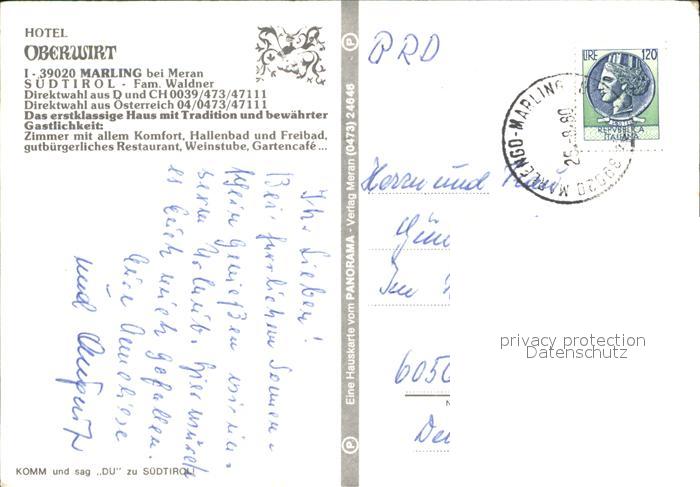 HOTEL
OBERWIRT
I - 39020 MARLING bei Meran
SÜDTIROL - Fam. Waldner
Direktwahl aus D und CH 0039/473/47111
Direktwahl aus Österreich 04/0473/47111
Das erstklassige Haus mit Tradition und bewährter
Gastlichkeit:
Zimmer mit allem Komfort, Hallenbad und Freibad,
gutbürgerliches Restaurant, Weinstube, Gartencafé...
Ihr Lieben!
Bei herrlichem Sonnen-
schein genießen wir un-
seren Urlaub. Hier würde
es Euch auch gefallen.
Eure Anneliese
und August
KOMM und sag „DU" zu SÜDTIROL!
Eine Hauskarte vom PANORAMA - Verlag Meran (0473) 24646
P
P
BRD
LIRE 120
REPUBBLICA
ITALIANA
39020 MARLENGO-MARLING
25-8-80
Herrn und Frau
Gün
Im
6050
De
privacy protection
Datenschutz